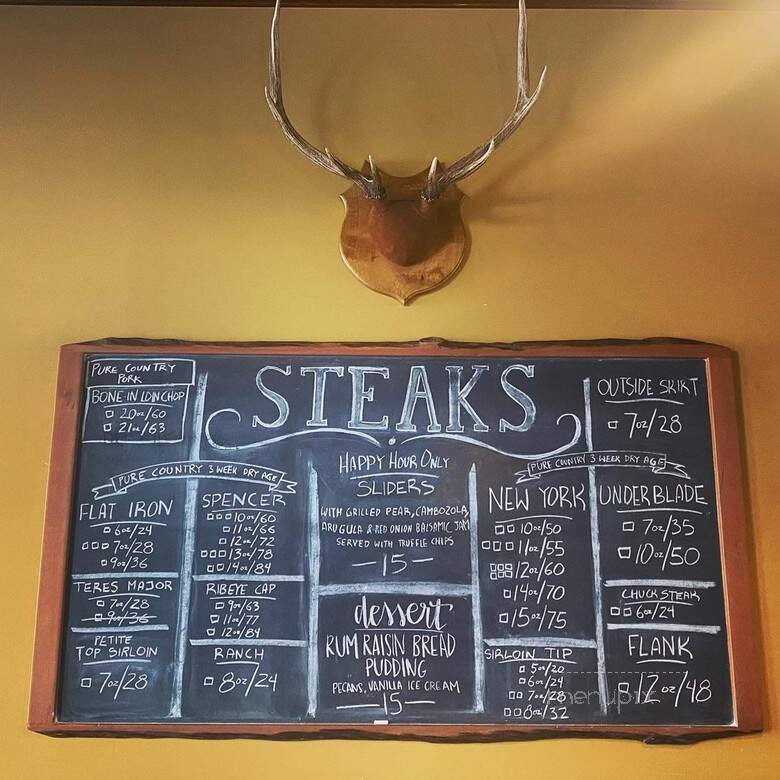 PURE COUNTRY
PORK
BONE-IN LOIN CHOP
20oz/60
21oz/63
STEAKS
OUTSIDE SKIRT
7oz/28
PURE COUNTRY 3 WEEK DRY AGE
FLAT IRON
6oz/24
7oz/28
9oz/36
TERES MAJOR
7oz/28
9oz/36
PETITE
TOP SIRLOIN
7oz/28
SPENCER
10oz/60
11oz/66
12oz/72
13oz/78
14oz/84
RIBEYE CAP
9oz/63
11oz/77
12oz/84
RANCH
8oz/24
HAPPY HOUR ONLY
SLIDERS
WITH GRILLED PEAR, CAMBOZOLA,
ARUGULA & RED ONION BALSAMIC JAM
SERVED WITH TRUFFLE CHIPS
—15—
dessert
RUM RAISIN BREAD
PUDDING
PECANS, VANILLA ICE CREAM
—15—
PURE COUNTRY 3 WEEK DRY AGE
NEW YORK
10oz/50
11oz/55
12oz/60
14oz/70
15oz/75
SIRLOIN TIP
5oz/20
6oz/24
7oz/28
8oz/32
UNDERBLADE
7oz/35
10oz/50
CHUCK STEAK
6oz/24
FLANK
12oz/48
menupix